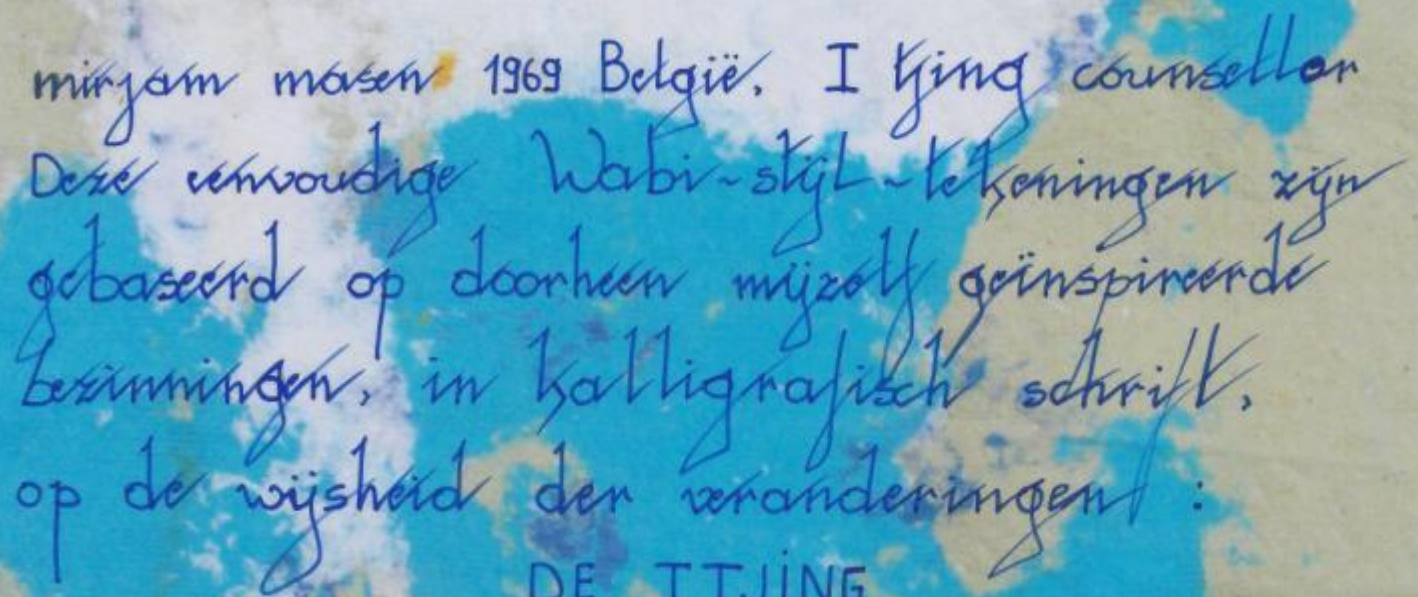 mirjam masen 1969 België. I tjing counsellor
Deze eenvoudige Wabi-stijl-tekeningen zijn
gebaseerd op doorheen mijzelf geïnspireerde
bezinningen, in kalligrafisch schrift,
op de wijsheid der veranderingen :
DE I TJING